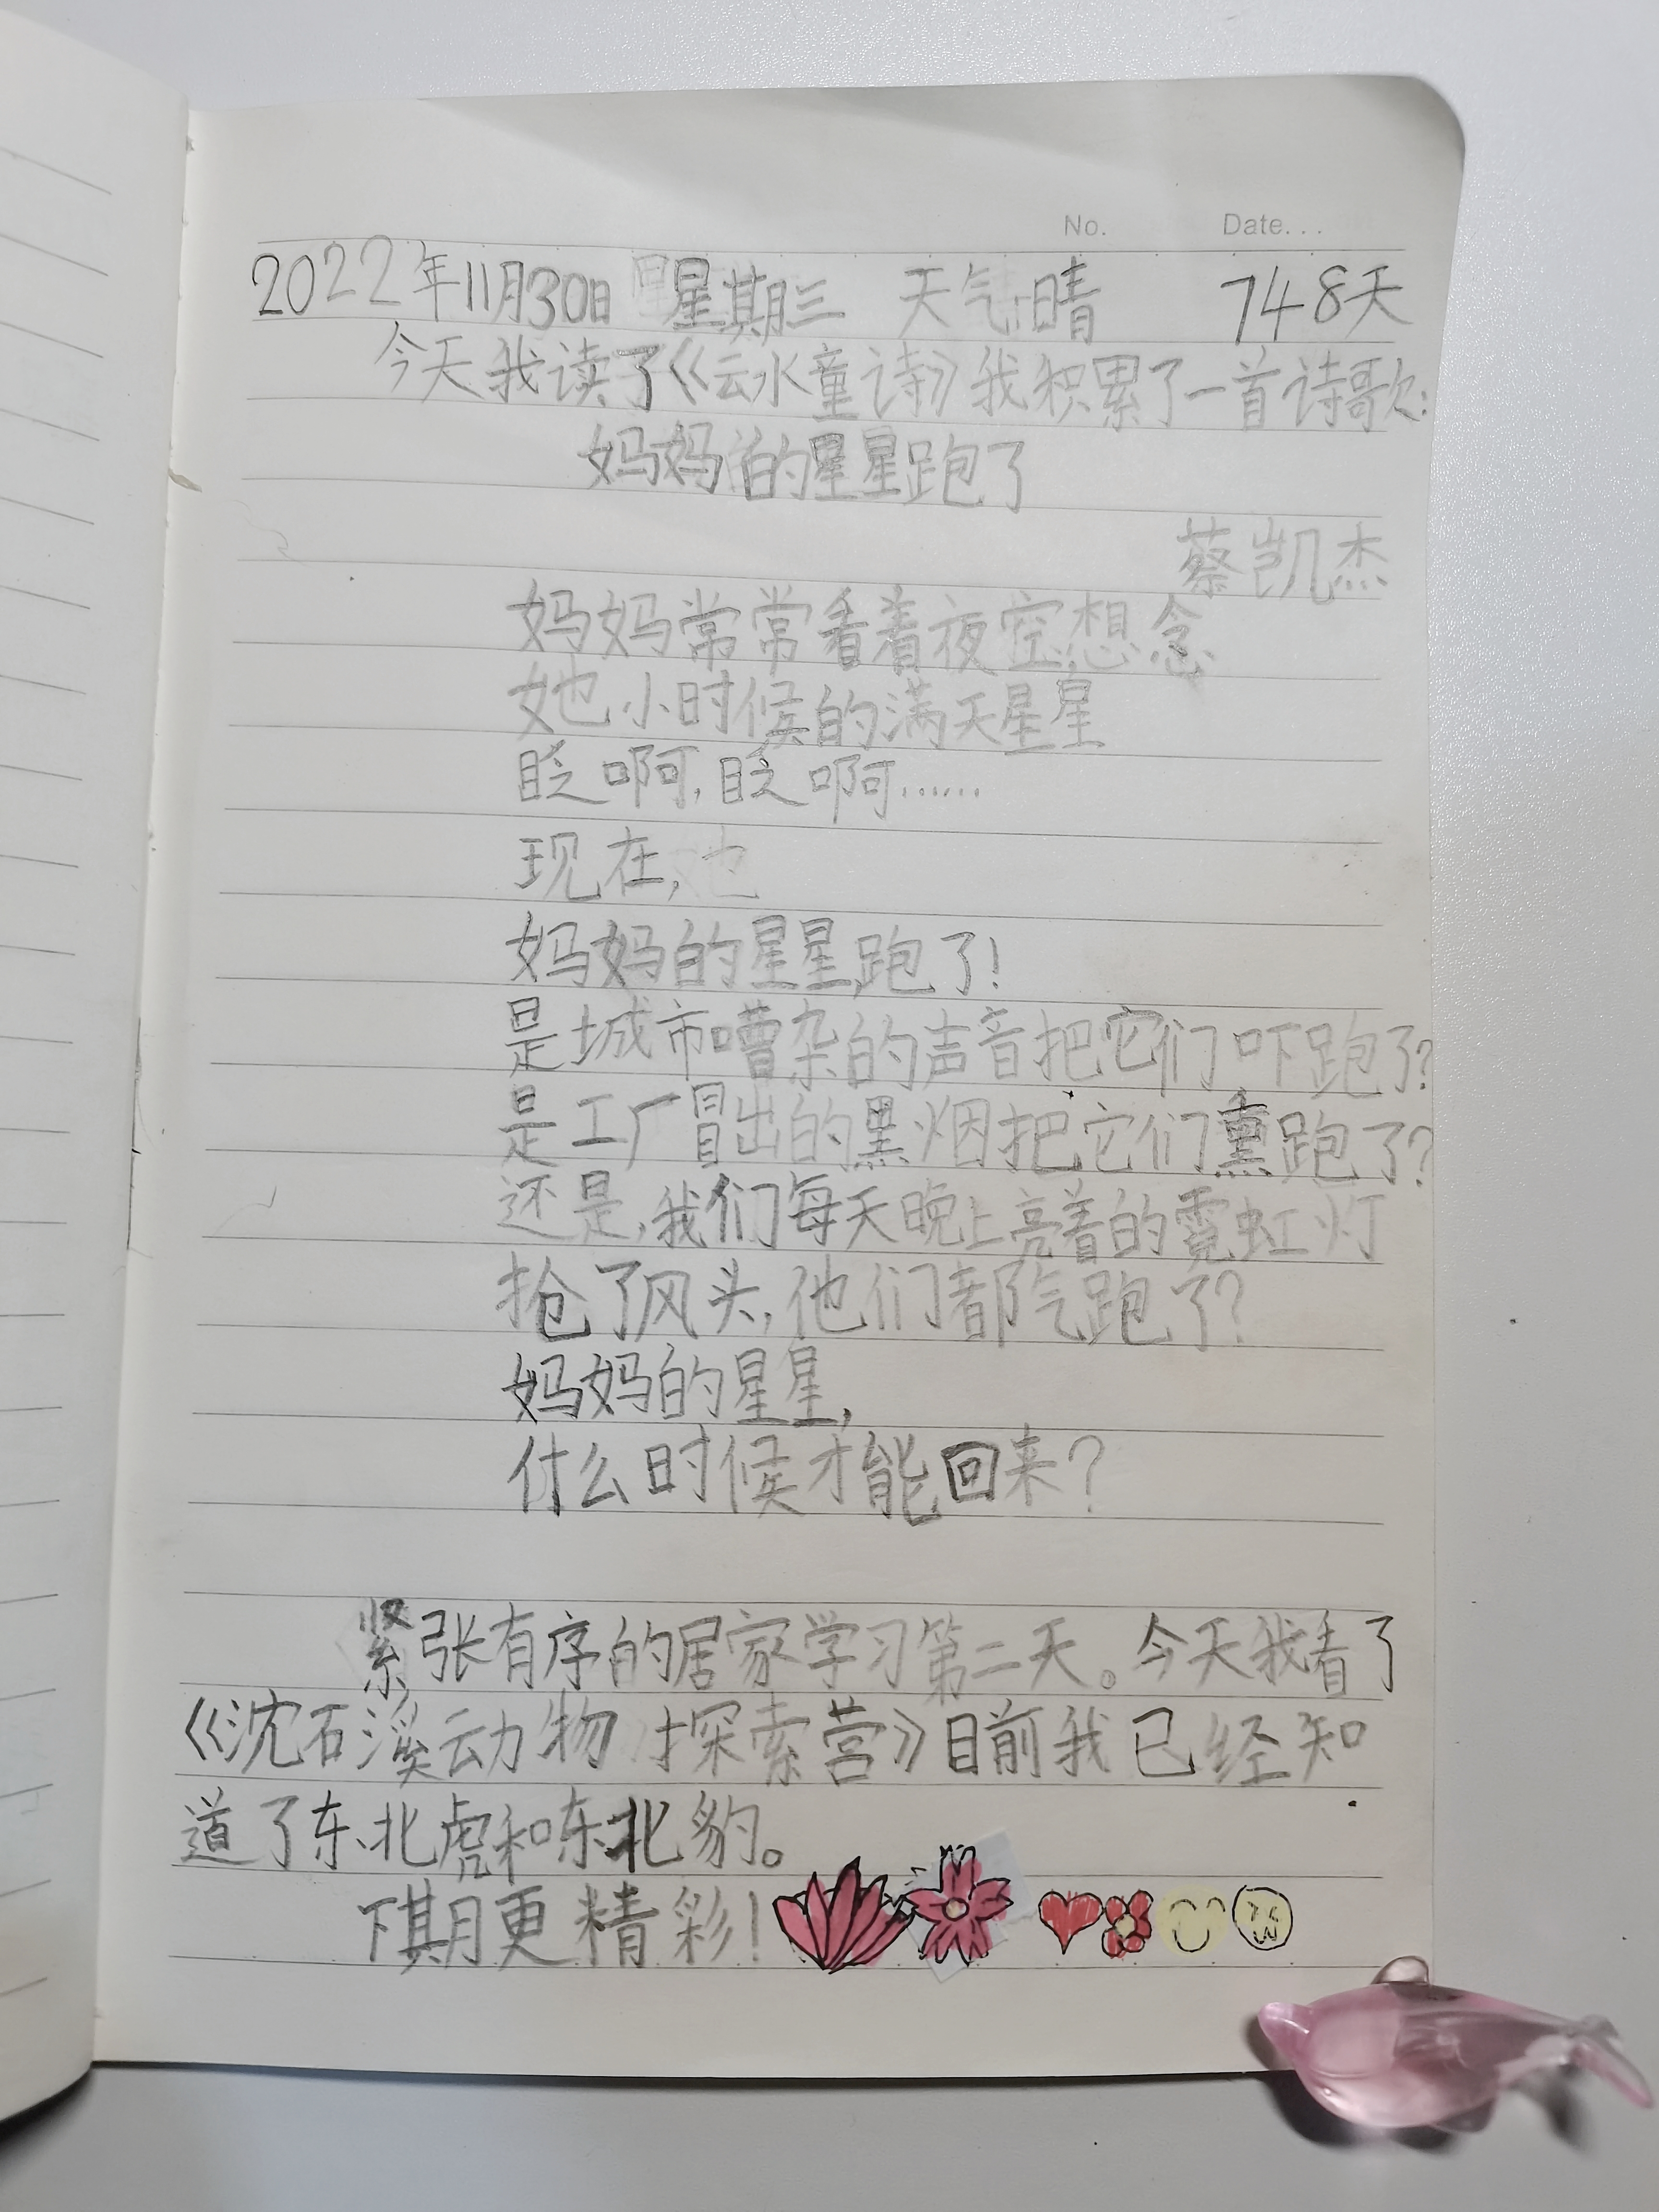 No. Date...
2022年11月30日 星期三 天气:晴 748天
今天我读了《云水童诗》我积累了一首诗歌:
妈妈的星星跑了
蔡凯杰
妈妈常常看着夜空,想念
她小时候的满天星星
眨啊,眨啊……
现在,
妈妈的星星跑了!
是城市嘈杂的声音把它们吓跑了?
是工厂冒出的黑烟把它们熏跑了?
还是,我们每天晚上亮着的霓虹灯
抢了风头,他们都气跑了?
妈妈的星星,
什么时候才能回来?
紧张有序的居家学习第二天。今天我看了
《沈石溪动物探索营》目前我已经知
道了东北虎和东北豹。
下期更精彩!